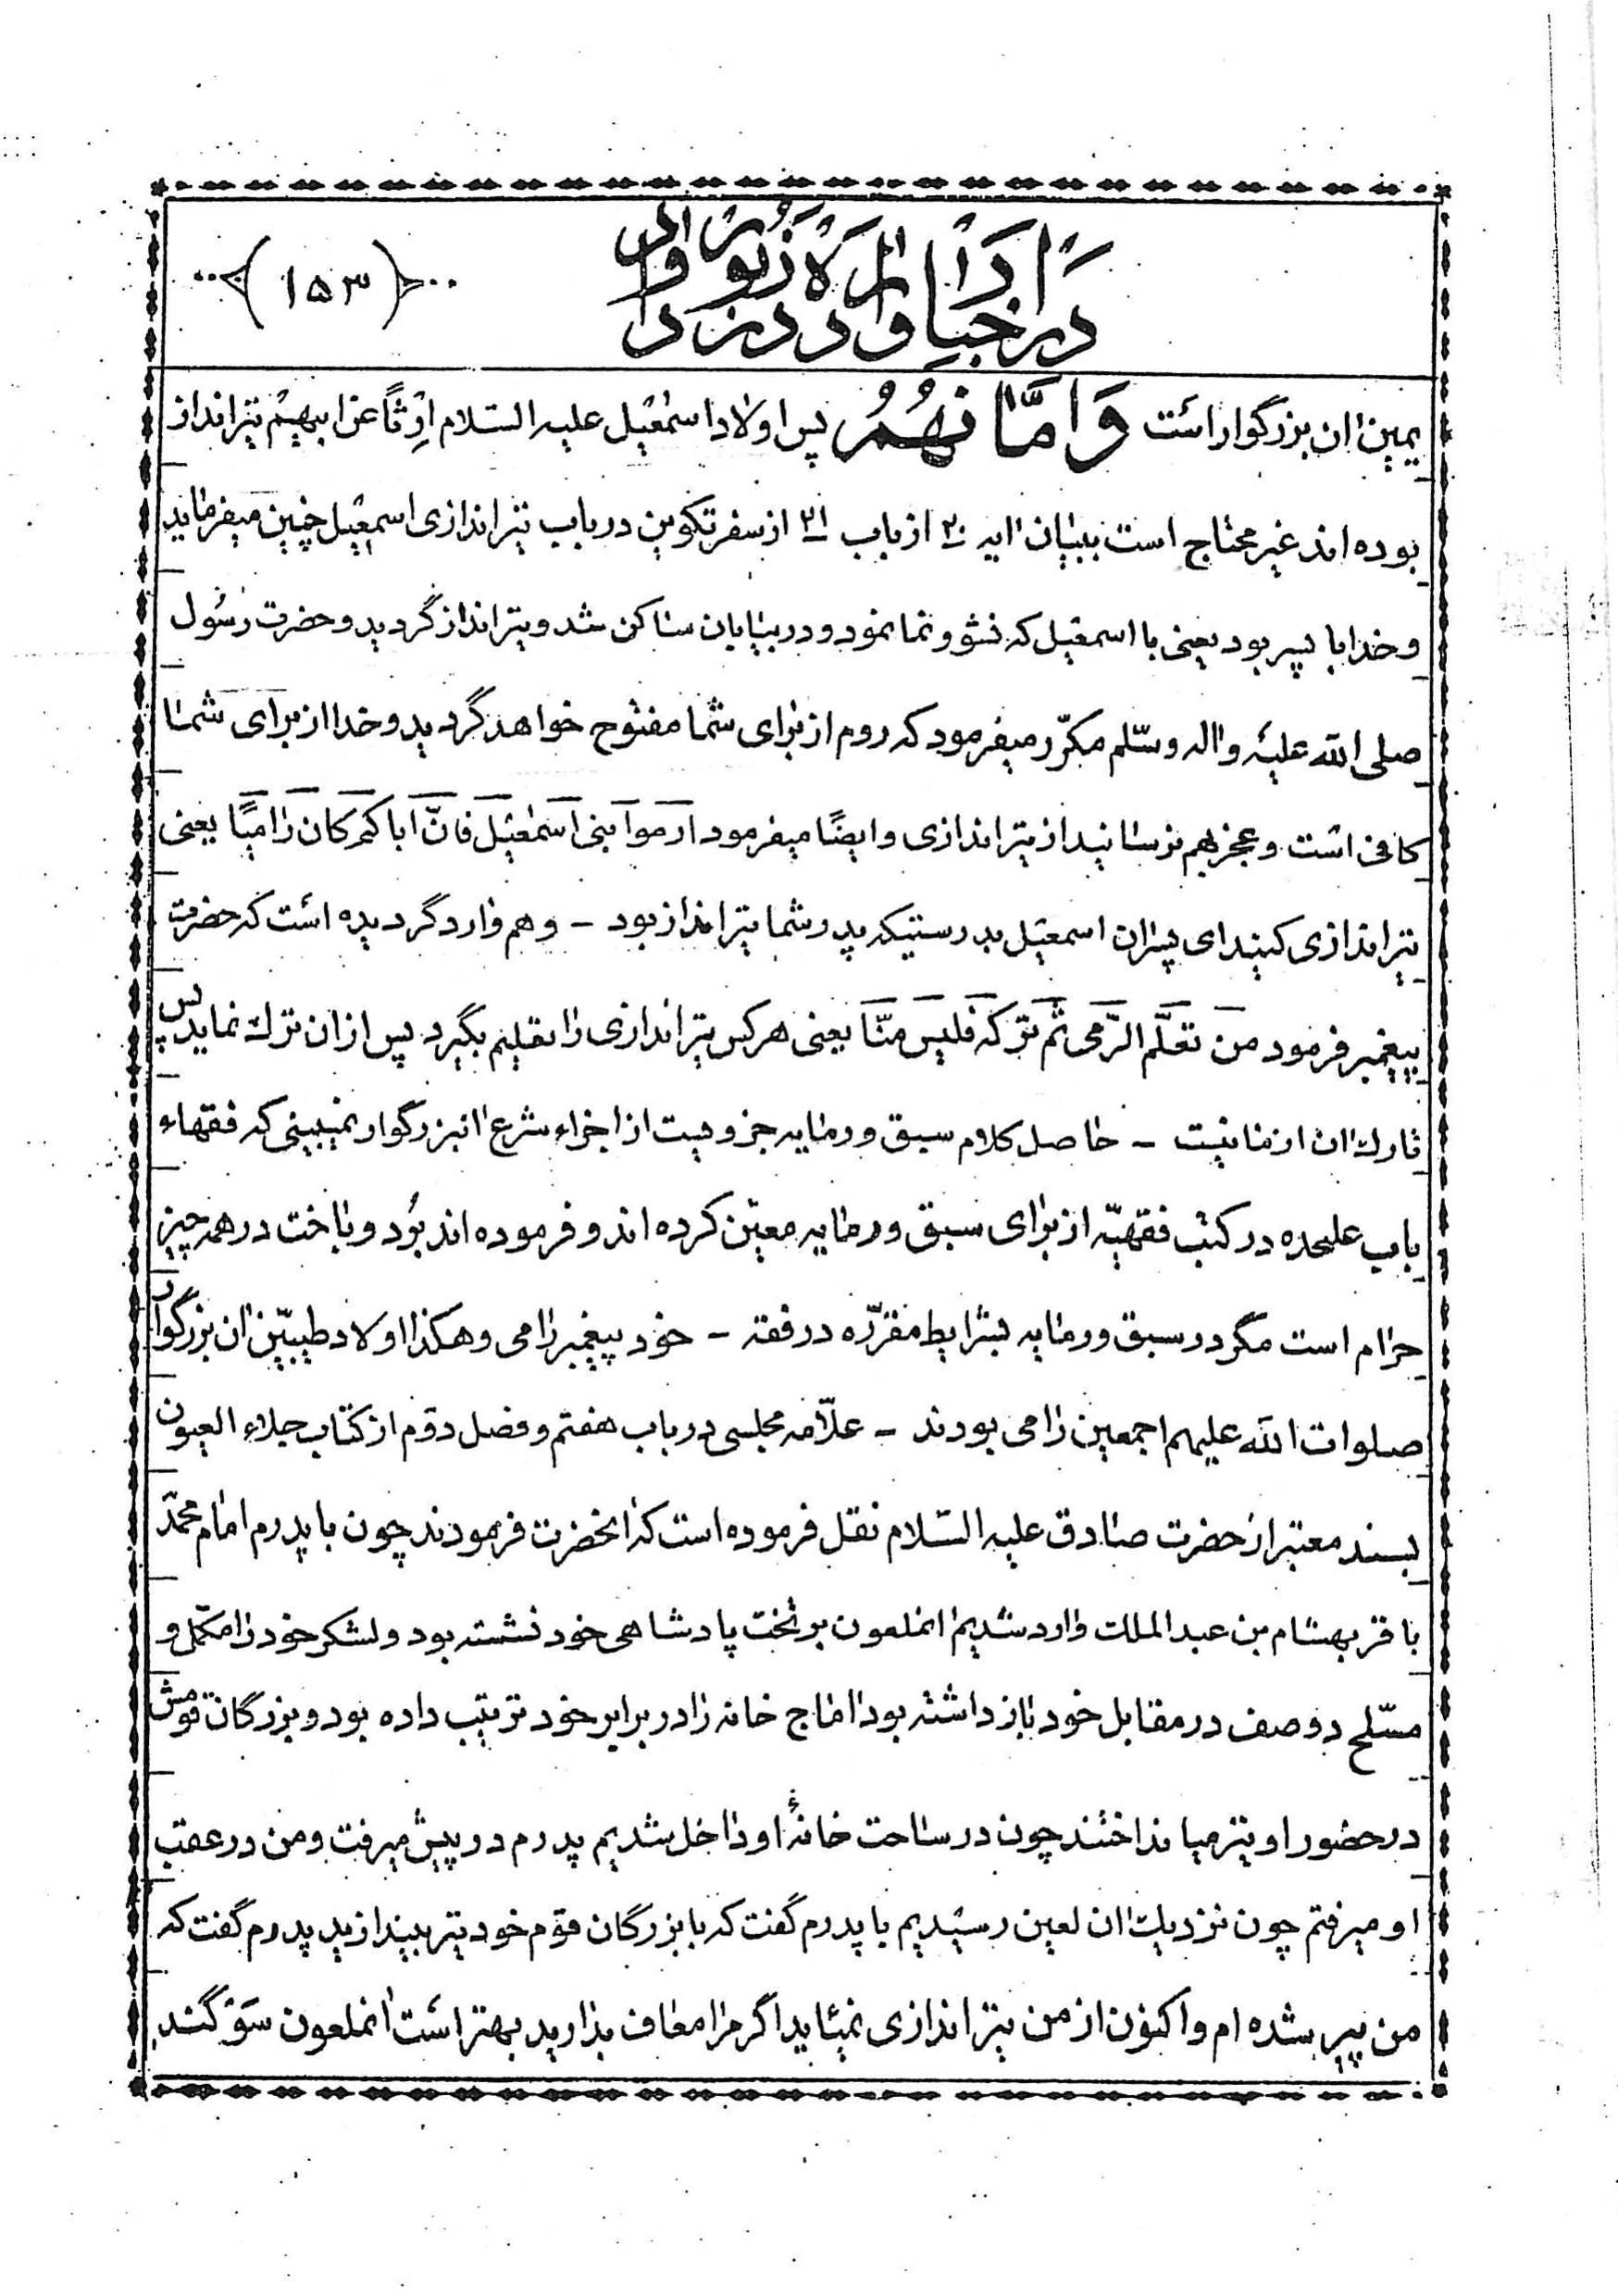 در اخبار وارده در زبور داود
(۱۵۳)
یمین ان بزرگوار است وَ اَمَّا نُهُمْ پس اولاد اسمعیل علیه السّلام اِرْثاً عن ابیهم تیرانداز
بوده اند غیر محتاج است ببیان ایه ۲۰ از باب ۲۱ از سفر تکوین در باب تیراندازی اسمعیل چنین میفرماید
و خدا با پسر بود یعنی با اسمعیل که نشو و نما نمود و در بیابان ساکن شد و تیرانداز گردید و حضرت رسُول
صلی الله علیه و اله و سلّم مکرّر میفرمود که روم از برای شما مفتوح خواهد گردید و خدا از برای شما
کافی است و عجز بهم نرسانید از تیراندازی و ایضًا میفرمود ارموا بنی اسمعیل فانّ اباکم کان رامیًا یعنی
تیراندازی کنید ای پسران اسمعیل بدرستیکه پدر شما تیرانداز بود - و هم وارد گردیده است که حضرت
پیغمبر فرمود من تعلّم الرّمی ثم ترکه فلیس منّا یعنی هر کس تیراندازی را تعلیم بگیرد پس از ان ترك نماید پس
تارك ان از ما نیست - حاصل کلام سبق و رمایه جزویست از اجزاء شرع انبزرگوار نمیبینی که فقهاء
باب علیحده در کتب فقهیّه از برای سبق و رمایه معیّن کرده اند و فرموده اند بُرد و باخت در همه چیز
حرام است مگر در سبق و رمایه بشرایط مقرّره در فقه - خود پیغمبر رامی و هکذا اولاد طیبّین ان بزرگوار
صلوات الله علیهم اجمعین رامی بودند - علّامه مجلسی در باب هفتم و فصل دوّم از کتاب جلاء العیون
بسند معتبر از حضرت صادق علیه السّلام نقل فرموده است که انحضرت فرمودند چون با پدرم امام محمّد
باقر بهشام بن عبد الملك وارد شدیم انملعون بر تخت پادشاهی خود نشسته بود و لشکر خود را مکمّل و
مسلّح دو صف در مقابل خود باز داشته بود اماج خانه را در برابر خود ترتیب داده بود و بزرگان قومش
در حضور او تیر میانداختند چون در ساحت خانهٔ او داخل شدیم پدرم در پیش میرفت و من در عقب
او میرفتم چون نزدیك ان لعین رسیدیم با پدرم گفت که با بزرگان قوم خود تیر بیندازید پدرم گفت که
من پیر شده ام و اکنون از من تیراندازی نمیاید اگر مرا معاف بدارید بهتر است انملعون سَوْگند